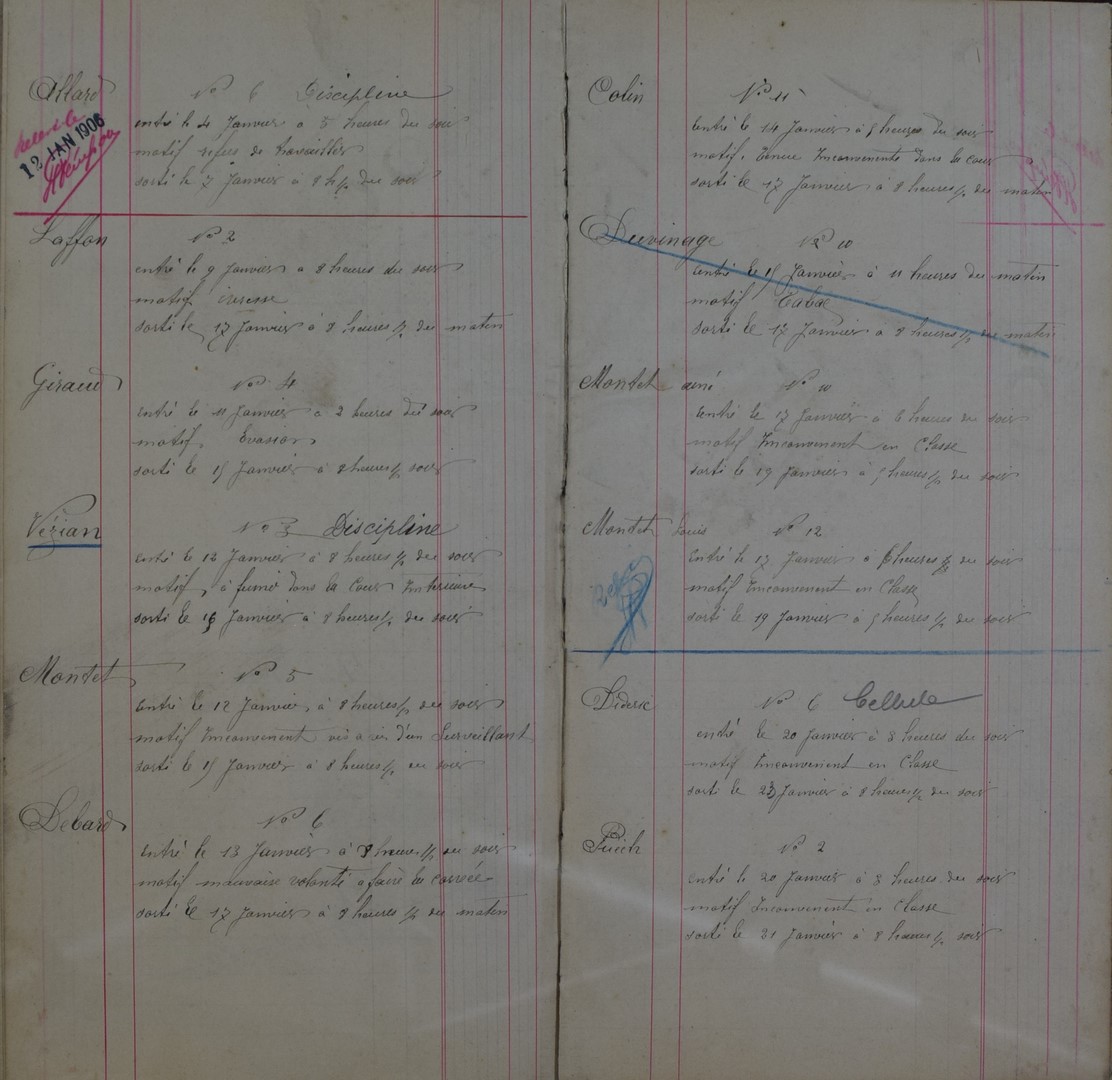 Allard N° 6 Discipline
12 JAN 1906
entré le 4 Janvier à 5 heures du soir
motif refus de travailler
sorti le 7 Janvier à 8 h ½ du soir
Laffon N° 2
entré le 9 Janvier à 8 heures du soir
motif ivresse
sorti le 17 Janvier à 8 heures ½ du matin
Giraud N° 4
entré le 11 Janvier à 2 heures du soir
motif, Evasion
sorti le 15 Janvier à 8 heures ½ soir
Vézian N° 3 Discipline
entré le 12 Janvier à 8 heures ½ du soir
motif, à fumé dans la Cour Intérieure
sorti le 16 Janvier à 8 heures ½ du soir
Montet N° 5
entré le 12 Janvier à 8 heures ½ du soir
motif Inconvenent vis à vis d'un Surveillant
sorti le 15 Janvier à 8 heures ½ du soir
Debard N° 6
entré le 13 Janvier à 8 heures ½ du soir
motif mauvaise volonté a faire la corvée
sorti le 17 Janvier à 8 heures ½ du matin
Colin N° 11
entré le 14 Janvier à 5 heures du soir
motif. Tenue Inconvenente dans la cour
sorti le 17 Janvier à 8 heures ½ du matin
Duvinage N° 10
entré le 15 Janvier à 11 heures du matin
motif Tabac
sorti le 17 Janvier à 8 heures ½ du matin
Montet ainé N° 10
entré le 17 Janvier à 6 heures du soir
motif Inconvenent en Classe
sorti le 19 Janvier à 5 heures ½ du soir
Montet Louis N° 12
entré le 17 Janvier à 6 heures ½ du soir
motif Inconvenent en Classe
sorti le 19 Janvier à 5 heures ½ du soir
Dideric N° 6 Cellule
entré le 20 Janvier à 8 heures du soir
motif Inconvenent en Classe
sorti le 23 Janvier à 8 heures ½ du soir
Puech N° 2
entré le 20 Janvier à 8 heures du soir
motif Inconvenent en Classe
sorti le 21 Janvier à 8 heures ½ soir